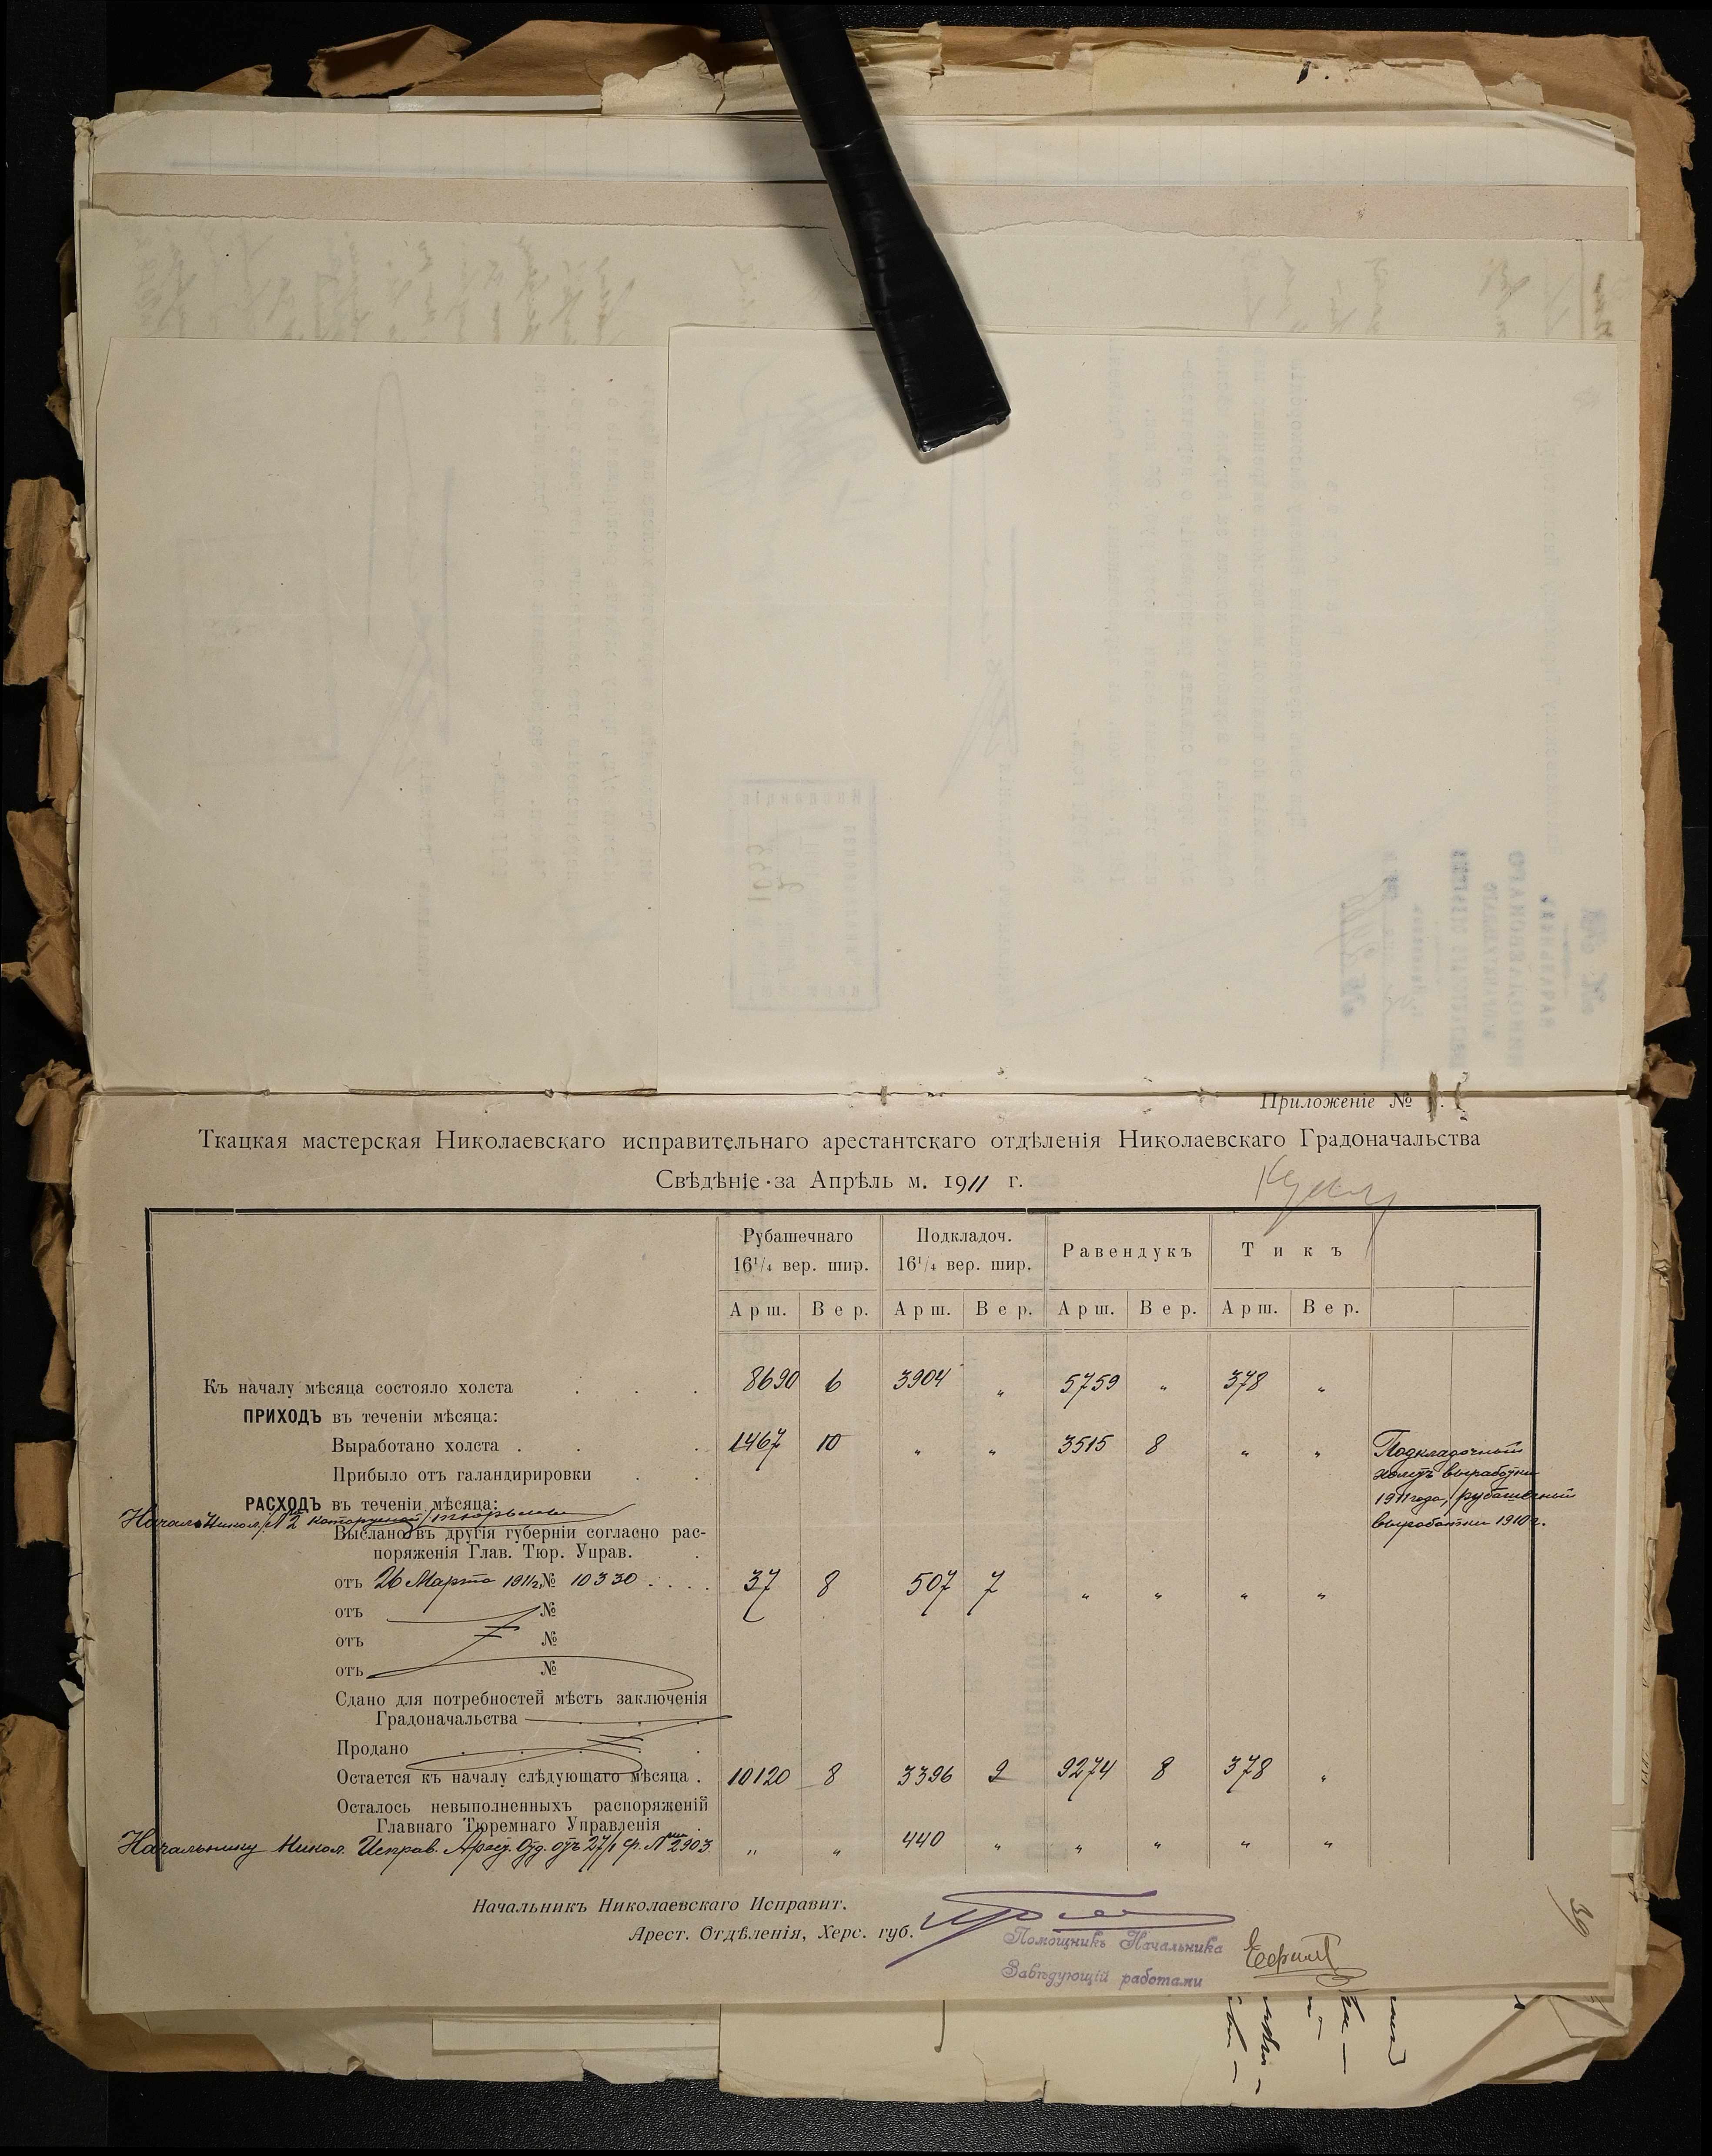 Приложеніе №
Ткацкая мастерская Николаевскаго исправительнаго арестантскаго отдѣленія Николаевскаго Градоначальства
Свѣдѣніе за Апрѣль м. 1911 г.
Рубашечнаго 16¹/₄ вер. шир. Подкладоч. 16¹/₄ вер. шир. Равендукъ Тикъ
Арш. Вер. Арш. Вер. Арш. Вер. Арш. Вер.
Къ началу мѣсяца состояло холста . . . 8690 6 3904 „ 5759 „ 378 „
ПРИХОДЪ въ теченіи мѣсяца:
Выработано холста . . . 1467 10 „ „ 3515 8 „ „
Прибыло отъ галандирировки . .
Подкладочный
холстъ выработки
1911 года, рубашечный
выработки 1910 г.
РАСХОДЪ въ теченіи мѣсяца:
Никол. № 2 каторжной тюрьмы
Выслано въ другія губерніи согласно рас-
поряженія Глав. Тюр. Управ. .
отъ 26 Марта 1911 г. № 10330 . . . . 37 8 507 7 „ „ „ „
отъ №
отъ №
отъ №
Сдано для потребностей мѣстъ заключенія
Градоначальства . .
Продано . . . .
Остается къ началу слѣдующаго мѣсяца . 10120 8 3396 9 9274 8 378 „
Осталось невыполненныхъ распоряженій
Главнаго Тюремнаго Управленія .
Начальнику Никол. Исправ. Арест. Отд. отъ 27/I с/г. № 2903 „ „ 440 „ „ „ „ „
Начальникъ Николаевскаго Исправит.
Арест. Отдѣленія, Херс. губ.
Помощникъ Начальника
Завѣдующій работами
39